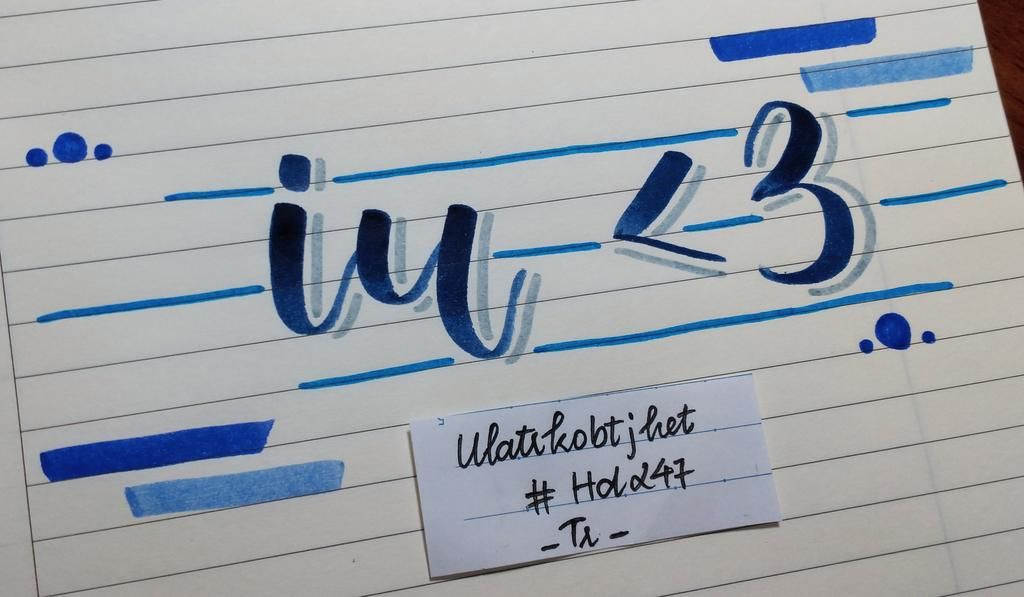 iu <3
Ulatikobtjhet
# Hd 247
- Tr -